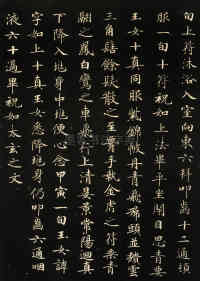 旬上符沐浴入室向東六拜叩齒十二通頓
服一旬十符祝如上法畢平坐閉目思青要
玉女十真同服紫錦帔丹青飛裙頭並頹雲
三角髻餘髮散之至腰手執金虎之符乘青
翮之鳳白鸞之車飛行上清晏景常陽迴真
下降入兆身中兆便心念甲寅一旬玉女諱
字如上十真玉女悉降兆身仍叩齒六通咽
液六十過畢祝如太玄之文